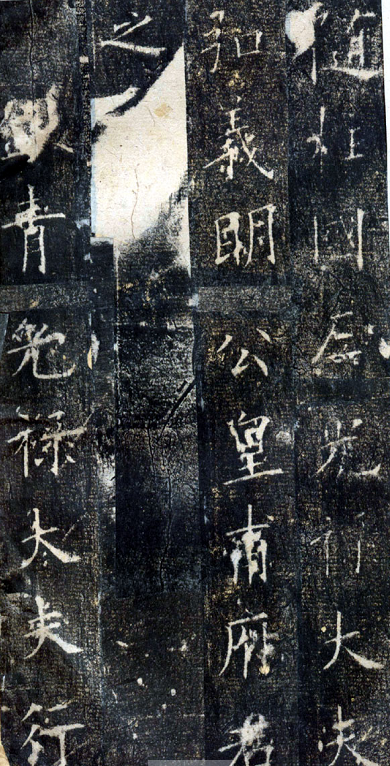 隨柱國左光祿大夫
弘義明公皇甫府君
之
銀青光祿大夫行